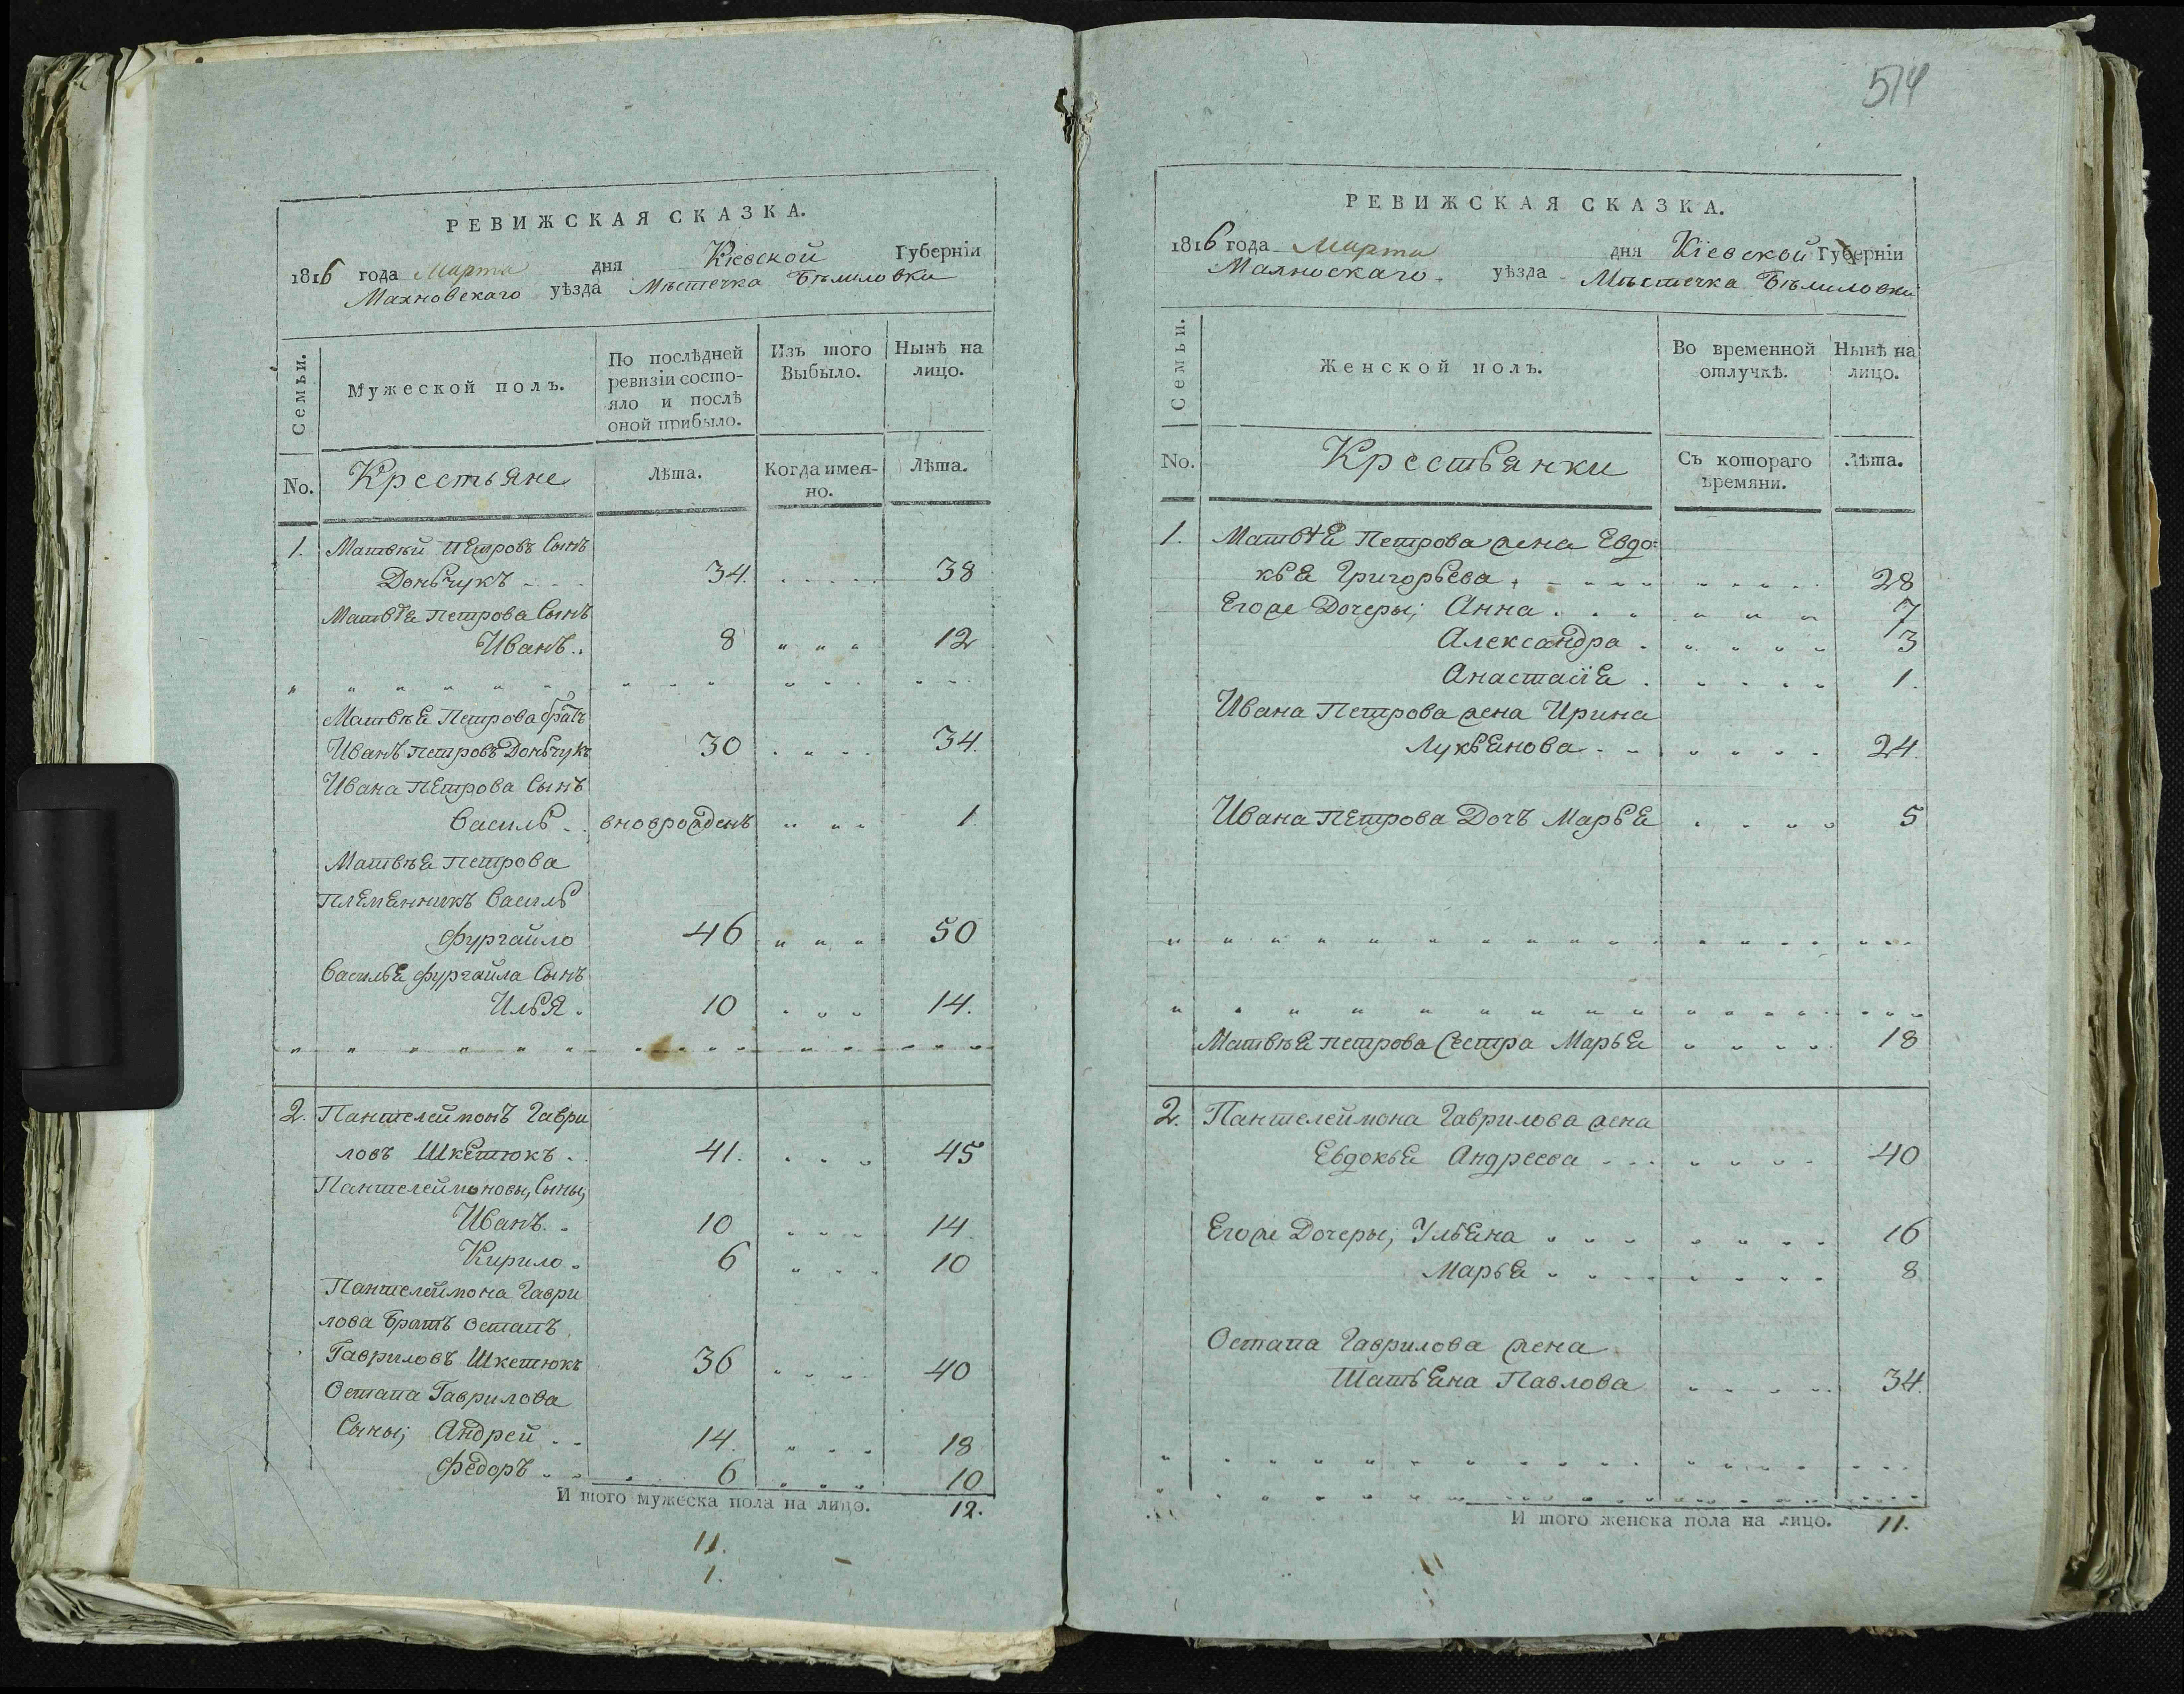 РЕВИЖСКАЯ СКАЗКА.
1816 года Марта дня Кіевской Губерніи
Махновскаго уѣзда Мѣстечка Бѣлиловки
Семьи. Мужеской полъ. По послѣдней ревизіи состо-яло и послѣ оной прибыло. Изъ того Выбыло. Нынѣ на лицо.
No. Крестьяне Лѣта. Когда имен-но. Лѣта.
1. Матвѣй Петровъ Сынъ
Доньчукъ 34. 38
Матвѣя Петрова Сынъ
Иванъ 8 " " " 12
" " " " " " " " " " " " " " "
Матвѣя Петрова братъ
Иванъ Петровъ Доньчукъ 30 34.
Ивана Петрова Сынъ
Василь вновророжденъ " " " 1
Матвѣя Петрова
Племянникъ Василь
Фургайло 46 " " " 50
Василья Фургайла Сынъ
Илья 10 " " " 14.
" " " " " " " " " " " " " " "
2. Пантелеймонъ Гаври
ловъ Шкетюкъ 41. 45
Пантелеймоновы, Сыны,
Иванъ 10 14
Кирило 6 10
Пантелеймона Гаври
лова Братъ Остапъ
Гавриловъ Шкетюкъ 36 40
Остапа Гаврилова
Сыны; Андрей 14. 18
Федоръ 6 10
И того мужеска пола на лицо. 12.
11.
1.
514
РЕВИЖСКАЯ СКАЗКА.
1816 года Марта дня Кіевской Губерніи
Махноскаго уѣзда Мѣстечка Бѣлиловки
Семьи. Женской полъ. Во временной отлучкѣ. Нынѣ на лицо.
No. Крестьянки Съ котораго времяни. Лѣта.
1. Матвѣя Петрова жена Евдо:
кья Григорьева 28
Его же Дочеры; Анна 7
Александра 3
Анастасія 1.
Ивана Петрова жена Ирина
Лукьянова 24.
Ивана Петрова Дочъ Марья 5
" " " " " " " " " " " " " " "
" " " " " " " " " " " " " " "
Матвѣя Петрова Сестра Марья 18
2. Пантелеймона Гаврилова жена
Евдокья Андреева 40
Его же Дочеры; Ульяна 16
Марья 8
Остапа Гаврилова жена
Татьяна Павлова 34.
" " " " " " " " " " " " " " "
" " " " " " " " " " " " " " "
И того женска пола на лицо. 11.
11